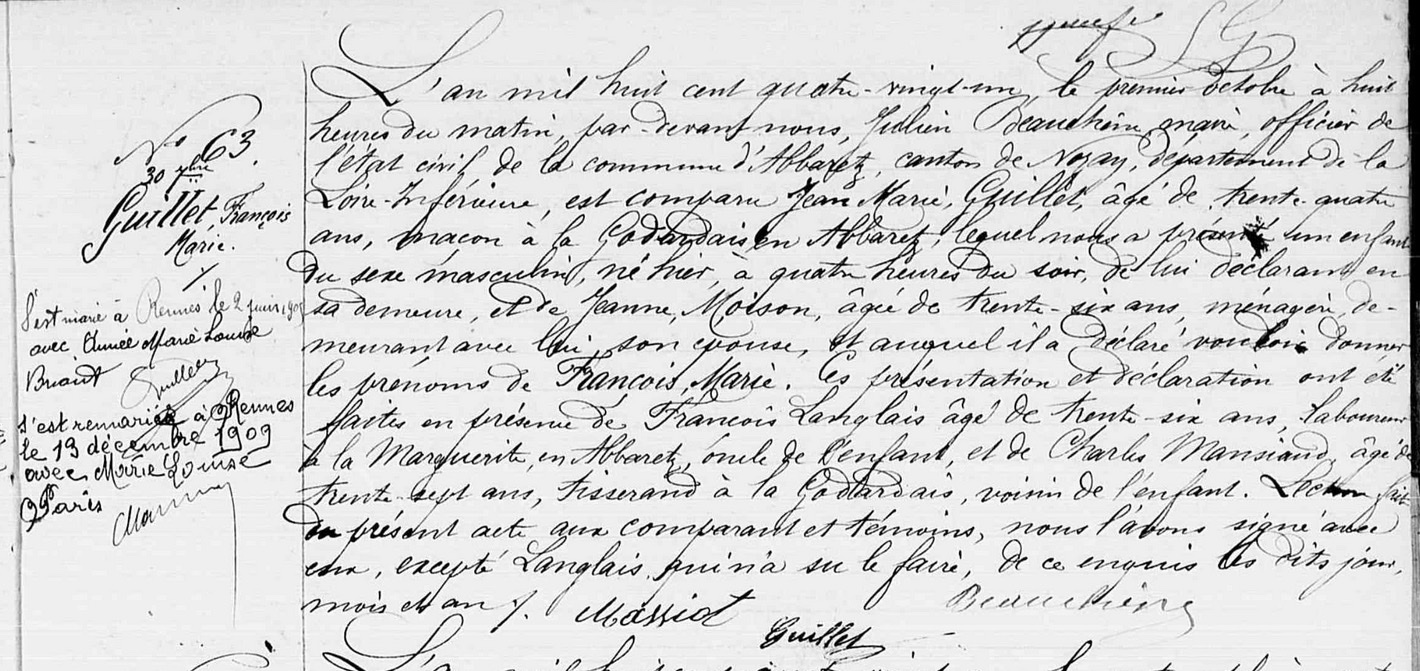 L'an mil huit cent quatre-vingt-un, le premier octobre à huit
heures du matin, par-devant nous, Julien Beauchêne, maire, officier de
l'état civil de la commune d'Abbaretz, canton de Nozay, département de la
Loire-Inférieure, est comparu Jean Marie Guillet, âgé de trente-quatre
ans, maçon à la Godardais en Abbaretz, lequel nous a présenté un enfant
du sexe masculin, né hier, à quatre heures du soir, de lui déclarant en
sa demeure, et de Jeanne Moison, âgée de trente-six ans, ménagère, de-
meurant avec lui, son épouse, et auquel il a déclaré vouloir donner
les prénoms de François Marie. Ces présentation et déclaration ont été
faites en présence de François Langlais âgé de trente-six ans, laboureur
à la Marguerite, en Abbaretz, oncle de l'enfant, et de Charles, âgé de
trente-sept ans, tisserand à la Godardais, voisin de l'enfant. Lecture faite
du présent acte aux comparant et témoins, nous l'avons signé avec
eux, excepté Langlais, qui n'a su le faire, de ce enquis les dits jour,
mois et an.
Beauchêne
Guillet
No 63.
30 7bre
Guillet, François
Marie.
S'est marié à Rennes le 2 juin
avec Aimée Marie Louise
Briant
s'est remarié à Rennes
le 13 décembre 1909
avec Marie Louise
Paris